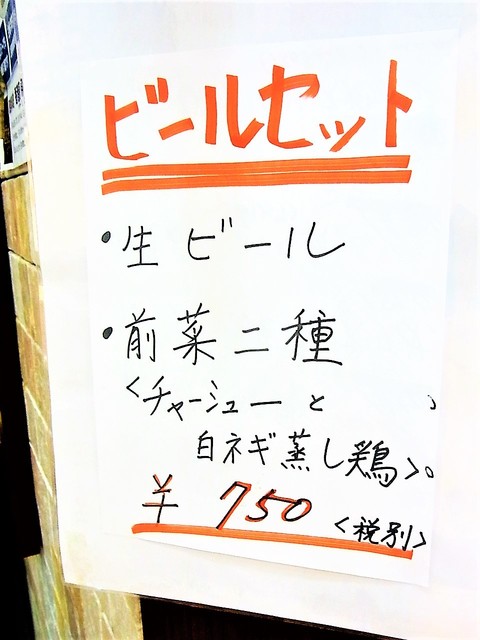 ビールセット
・生ビール
・前菜二種
<チャーシューと
白ネギ蒸し鶏>。
¥750 <税別>